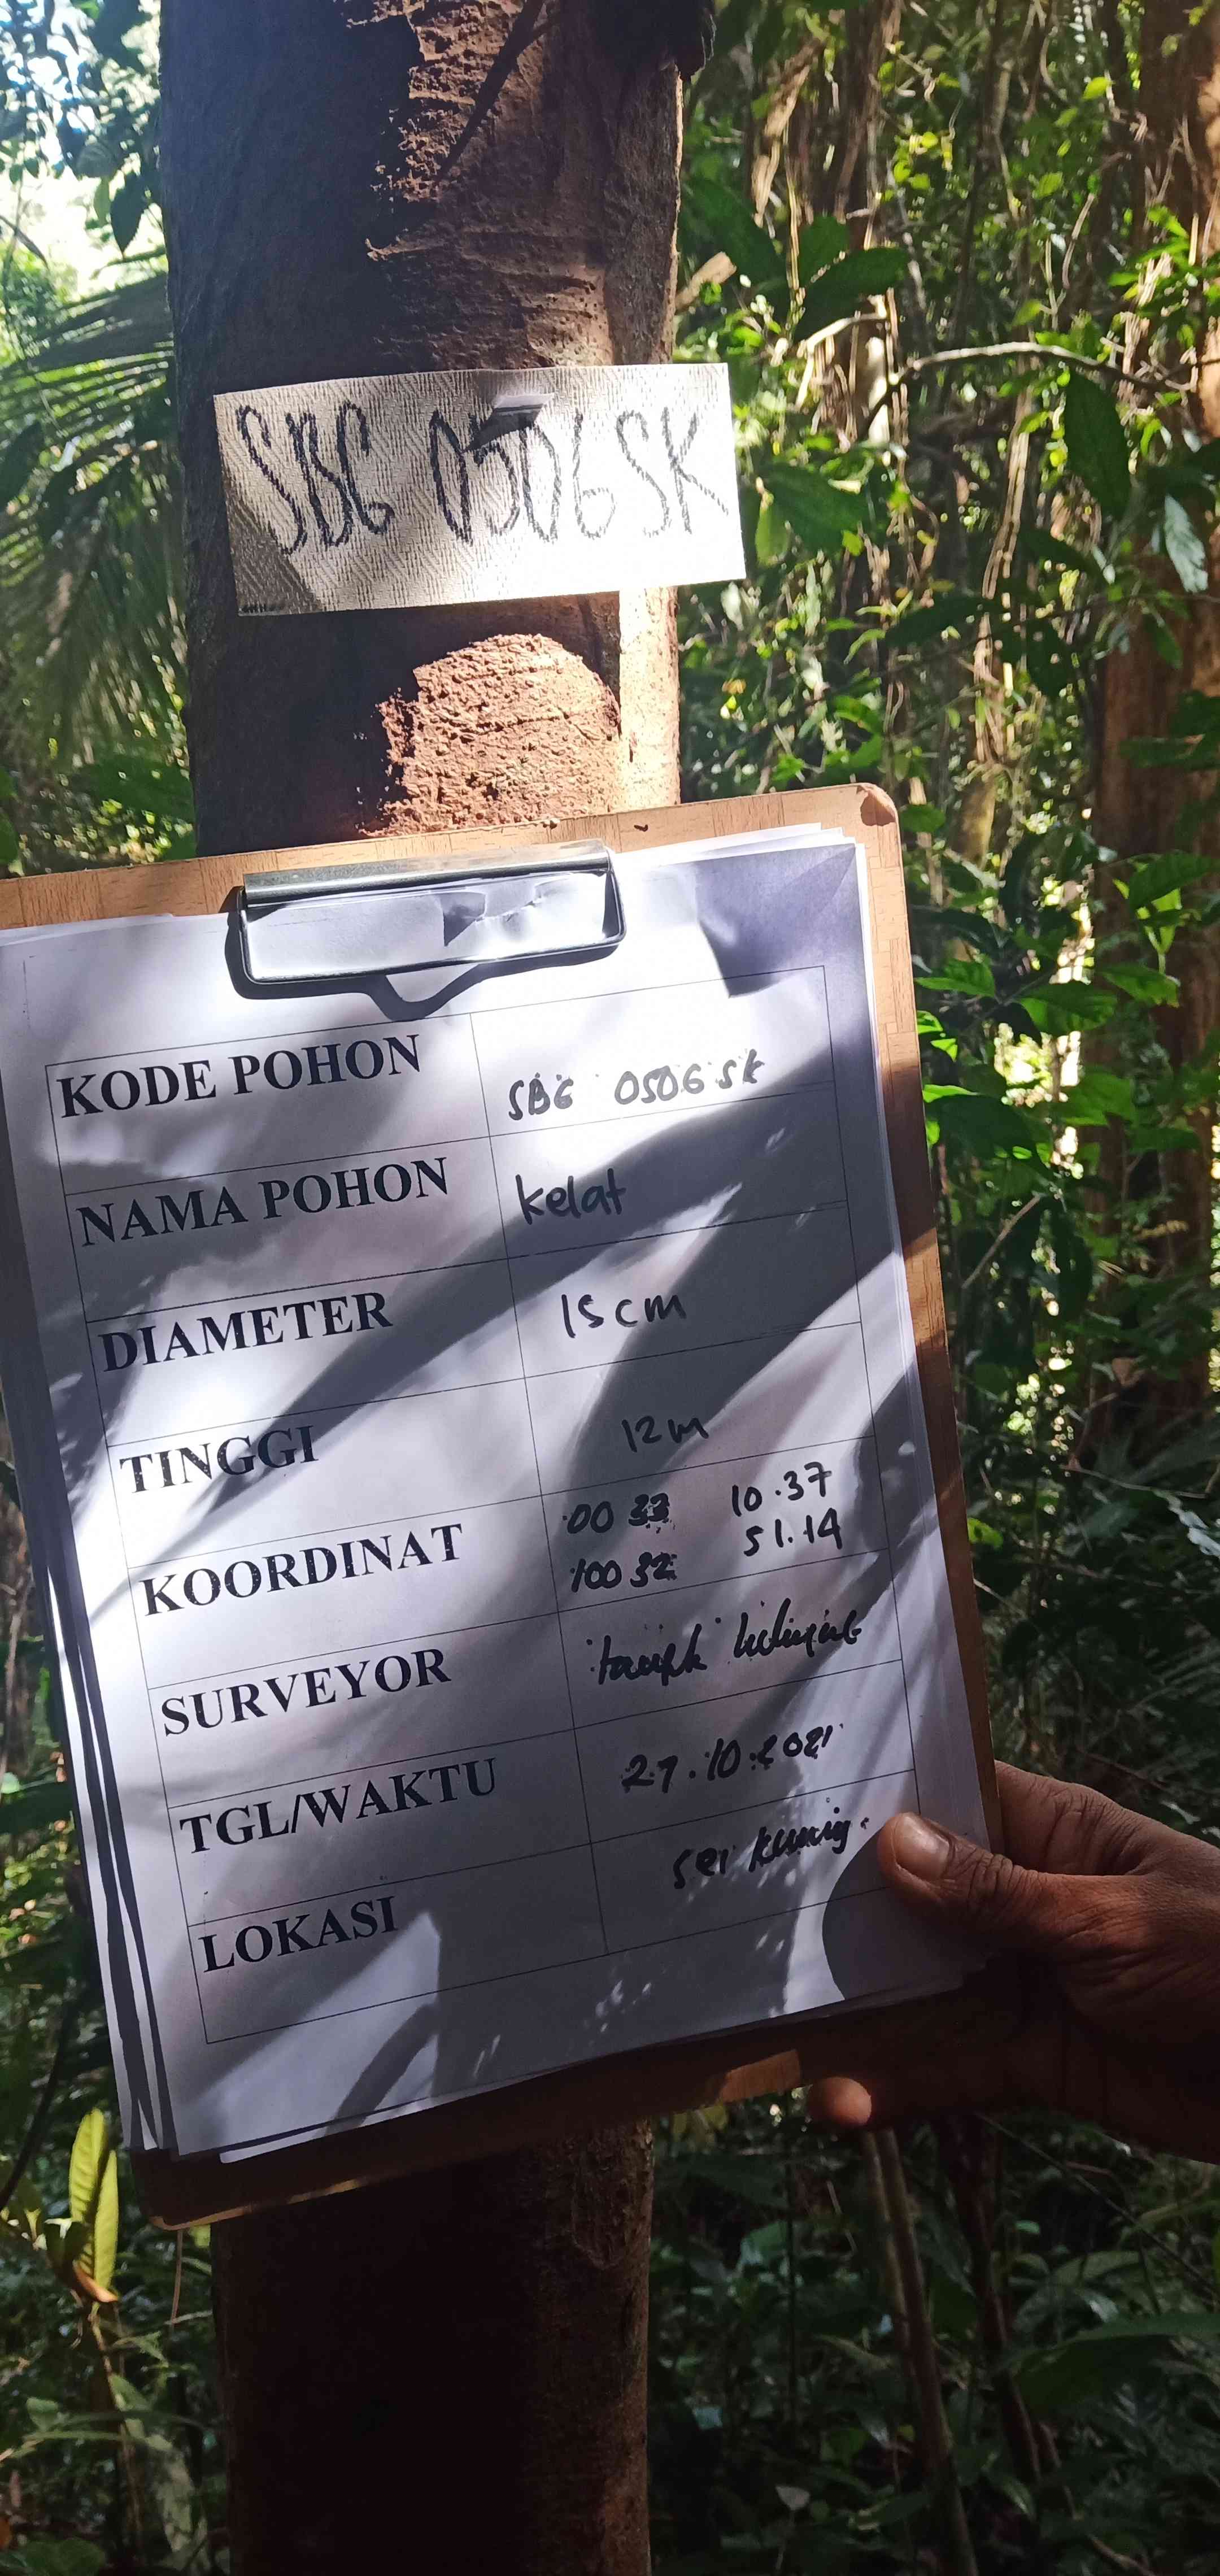 SBG 0506 SK
KODE POHON SBG 0506 SK
NAMA POHON kelat
DIAMETER 15 cm
TINGGI 12 m
KOORDINAT 00 33 10.37
100 32 51.14
SURVEYOR taufik
TGL/WAKTU 27.10.2021
LOKASI sei kuning